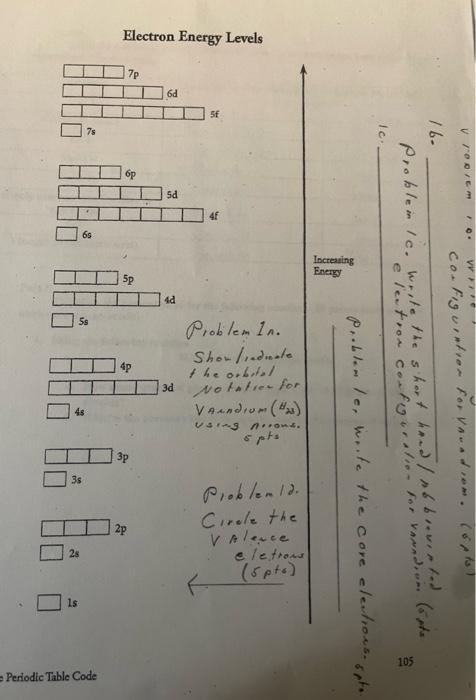 Electron Energy Levels
7p
6d
5f
7s
6p
5d
4f
6s
5p
4d
5s
4p
3d
4s
3p
3s
2p
2s
1s
Increasing
Energy
Problem 1a.
Show/indicate
the orbital
Notation for
Vanadium (#23)
using Arrows.
5 pts
Problem 1d.
Circle the
Valence
eletrons
(5pts)
Configuration for Vanadium. (5pts)
1b.
Problem 1c. Write the short hand/Abbreviated
electron configuration for Vanadium (5pts
1c.
Problem 1e. Write the core electrons. 5pts.
105
Periodic Table Code